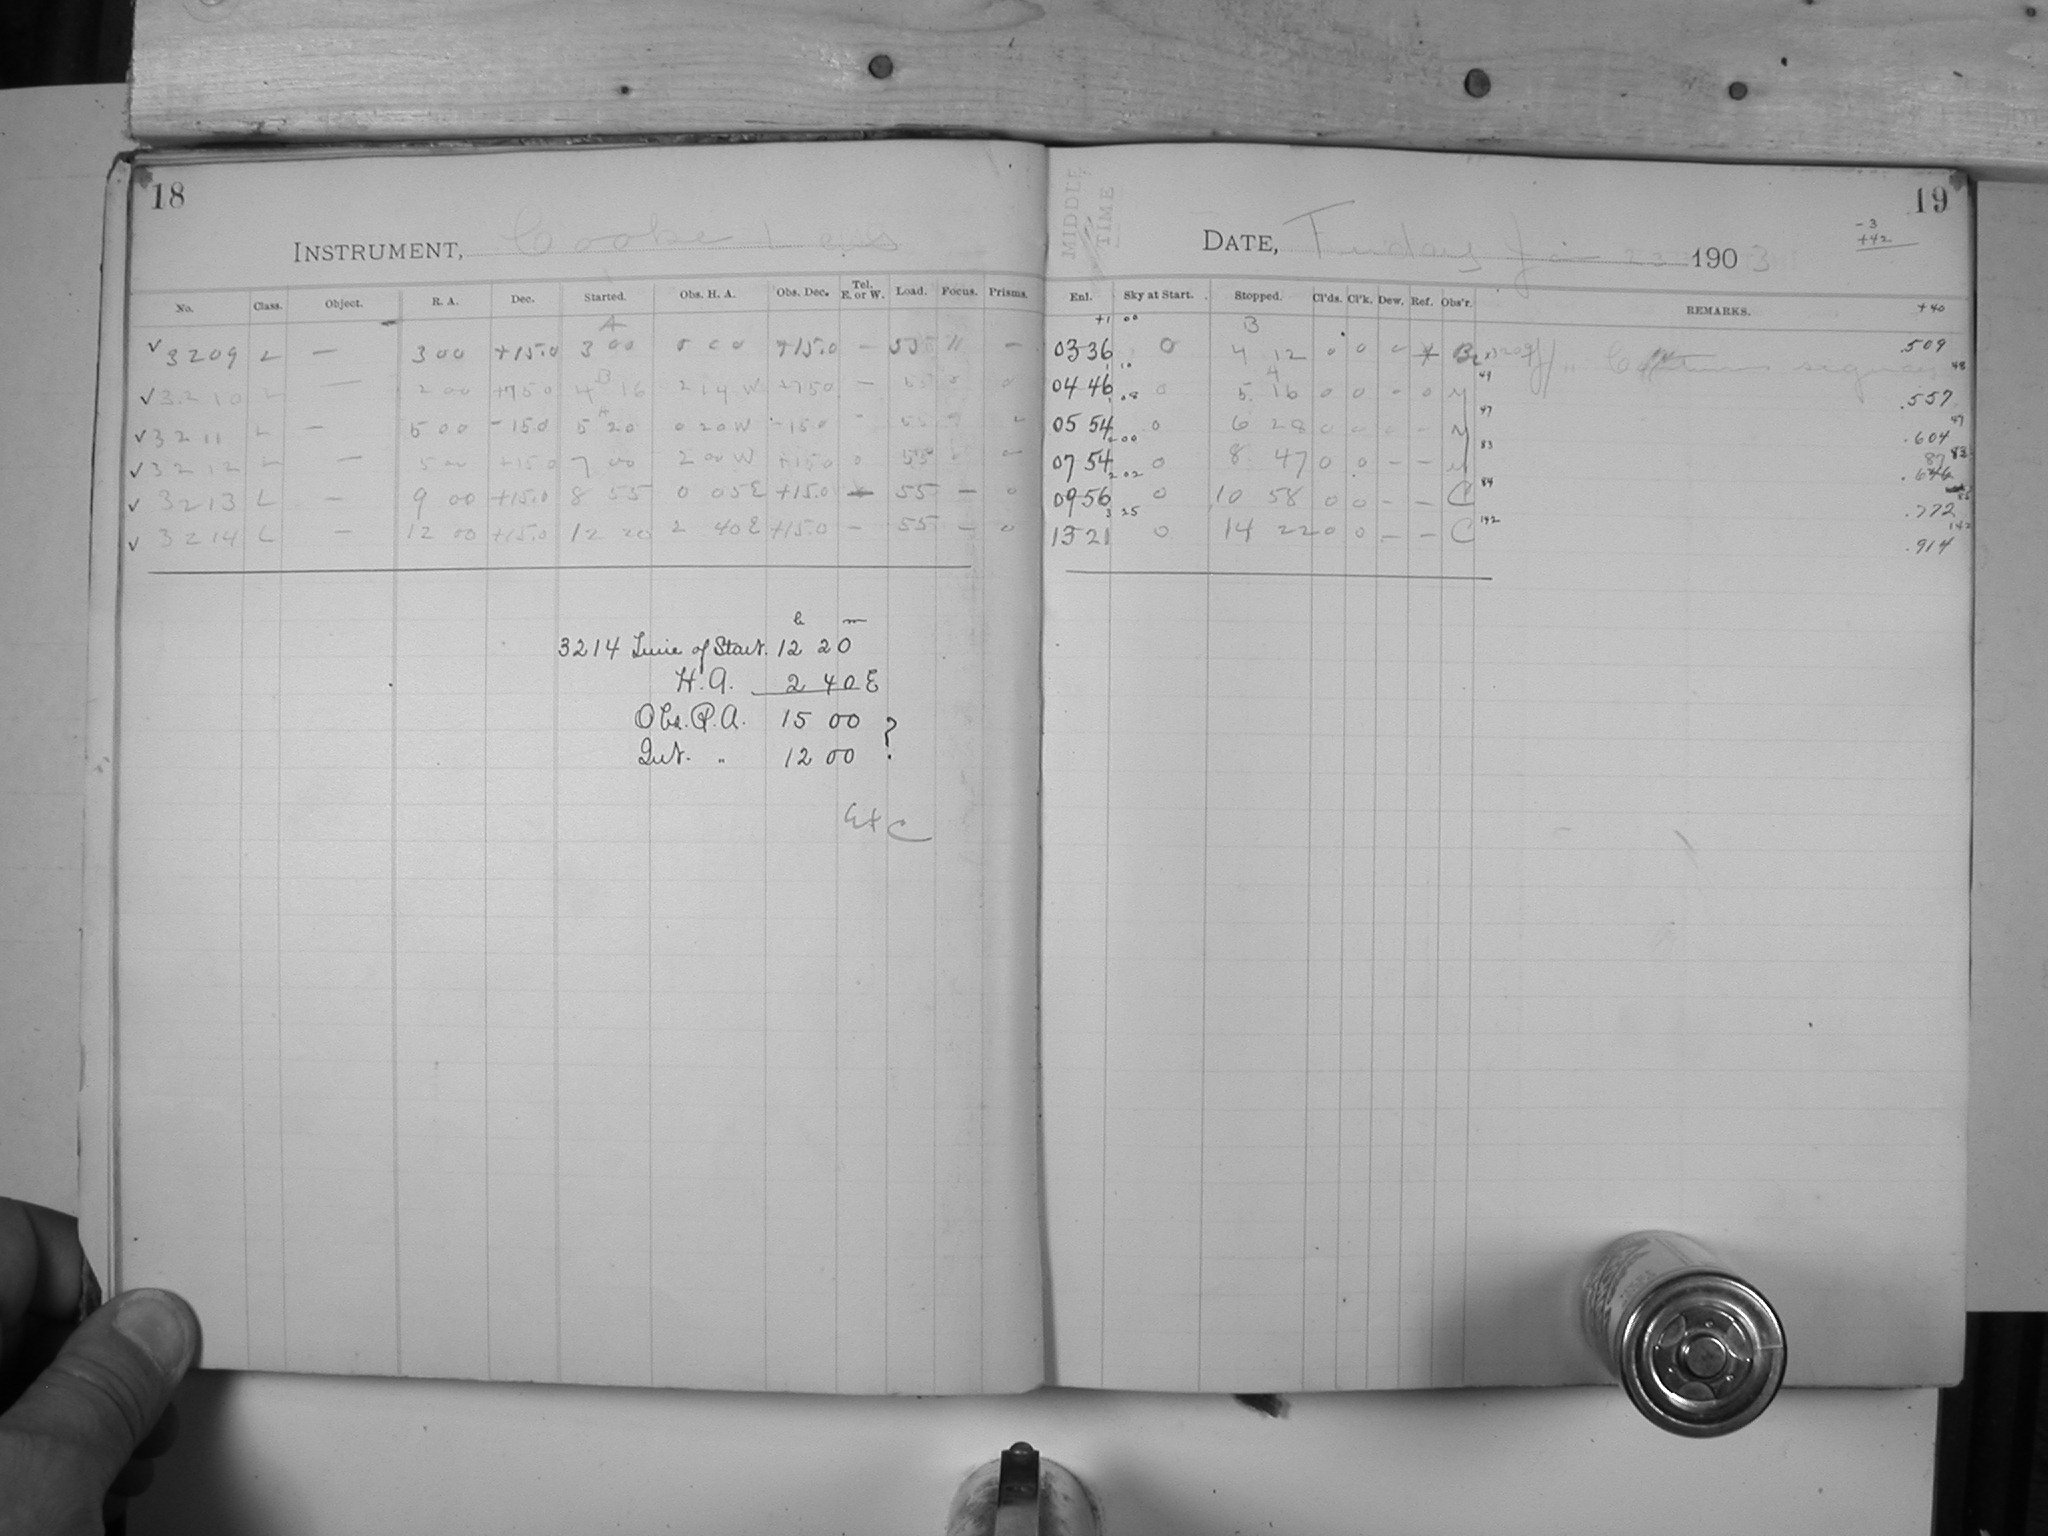 18
INSTRUMENT, Cooke Lens
No. Class. Object. R. A. Dec. Started. Obs. H. A. Obs. Dec. Tel. E. or W. Load. Focus. Prisms.
A
✓ 3209 L — 3 00 +15.0 3 00 0 00 +15.0 — 55 —
B
✓ 3210 L — 2 00 +75.0 4 16 2 14 W +75.0 — 55 0 0
A
✓ 3211 L — 5 00 -15.0 5 20 0 20 W -15.0 — 55
✓ 3212 L — 5 00 +15.0 7 00 2 00 W +15.0 0 55
✓ 3213 L — 9 00 +15.0 8 55 0 05 E +15.0 — 55 — 0
✓ 3214 L — 12 00 +15.0 12 20 2 40 E +15.0 — 55 — 0
h m
3214 Time of Start. 12 20
H.A. 2 40 E
Obs. R.A. 15 00
Int. " 12 00 ?
19
MIDDLE
TIME
DATE, Friday Jan 23 1903
-3
+42
Enl. Sky at Start. Stopped. Cl'ds. Cl'k. Dew. Ref. Obs'r. REMARKS. +40
+1 00
B
03 36 0 4 12 0 0 .509
1 10
4
04 46 0 5 16 0 0 - 0 M 49 48
.557
1 08
05 54 0 6 28 0 0 M 47 47
.604
2 00
07 54 0 8 47 0 0 — — M 83 83
87
.646
2 02
09 56 0 10 58 0 0 — — C 84
.772
3 25
13 21 0 14 22 0 0 — — C 142 142
.914